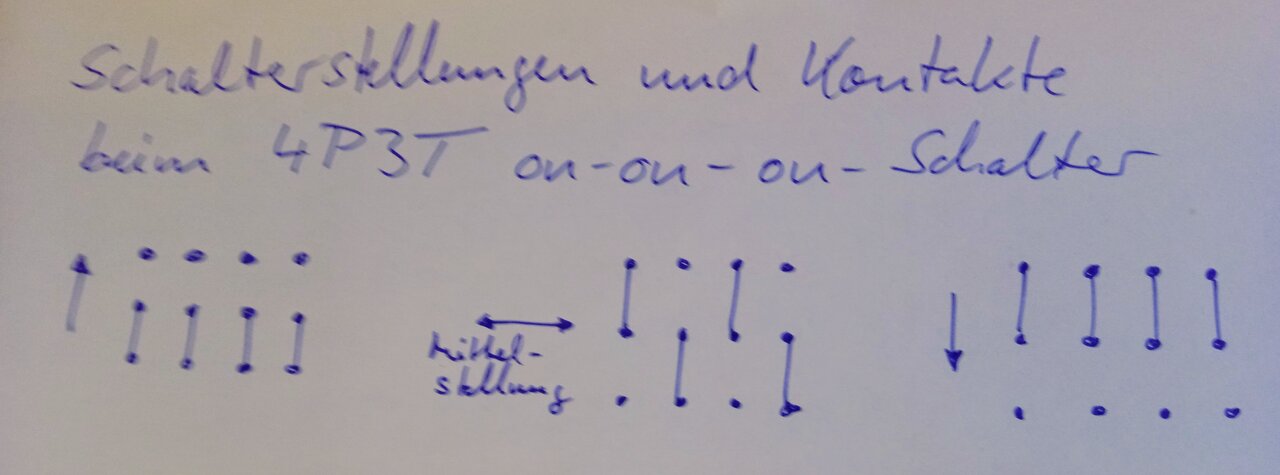 Schalterstellungen und Kontakte
beim 4P3T on-on-on-Schalter
Mittel-
stellung